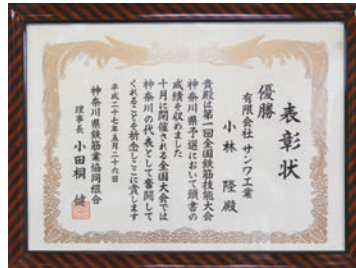 表彰状
優勝
有限会社 サンワ工業
小林 隆 殿
貴殿は第一回全国鉄筋技能大会
神奈川県予選において頭書の
成績を収めました
十月に開催される全国大会では
神奈川の代表として奮闘して
くれることを祈念しここに賞します
平成二十七年五月二十六日
神奈川県鉄筋業協同組合
理事長 小田桐 健